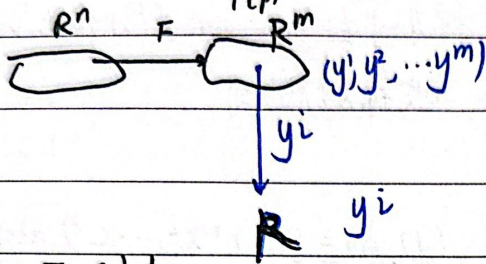 Rⁿ F Rᵐ
(y¹, y², ⋯ yᵐ)
yⁱ
R yⁱ